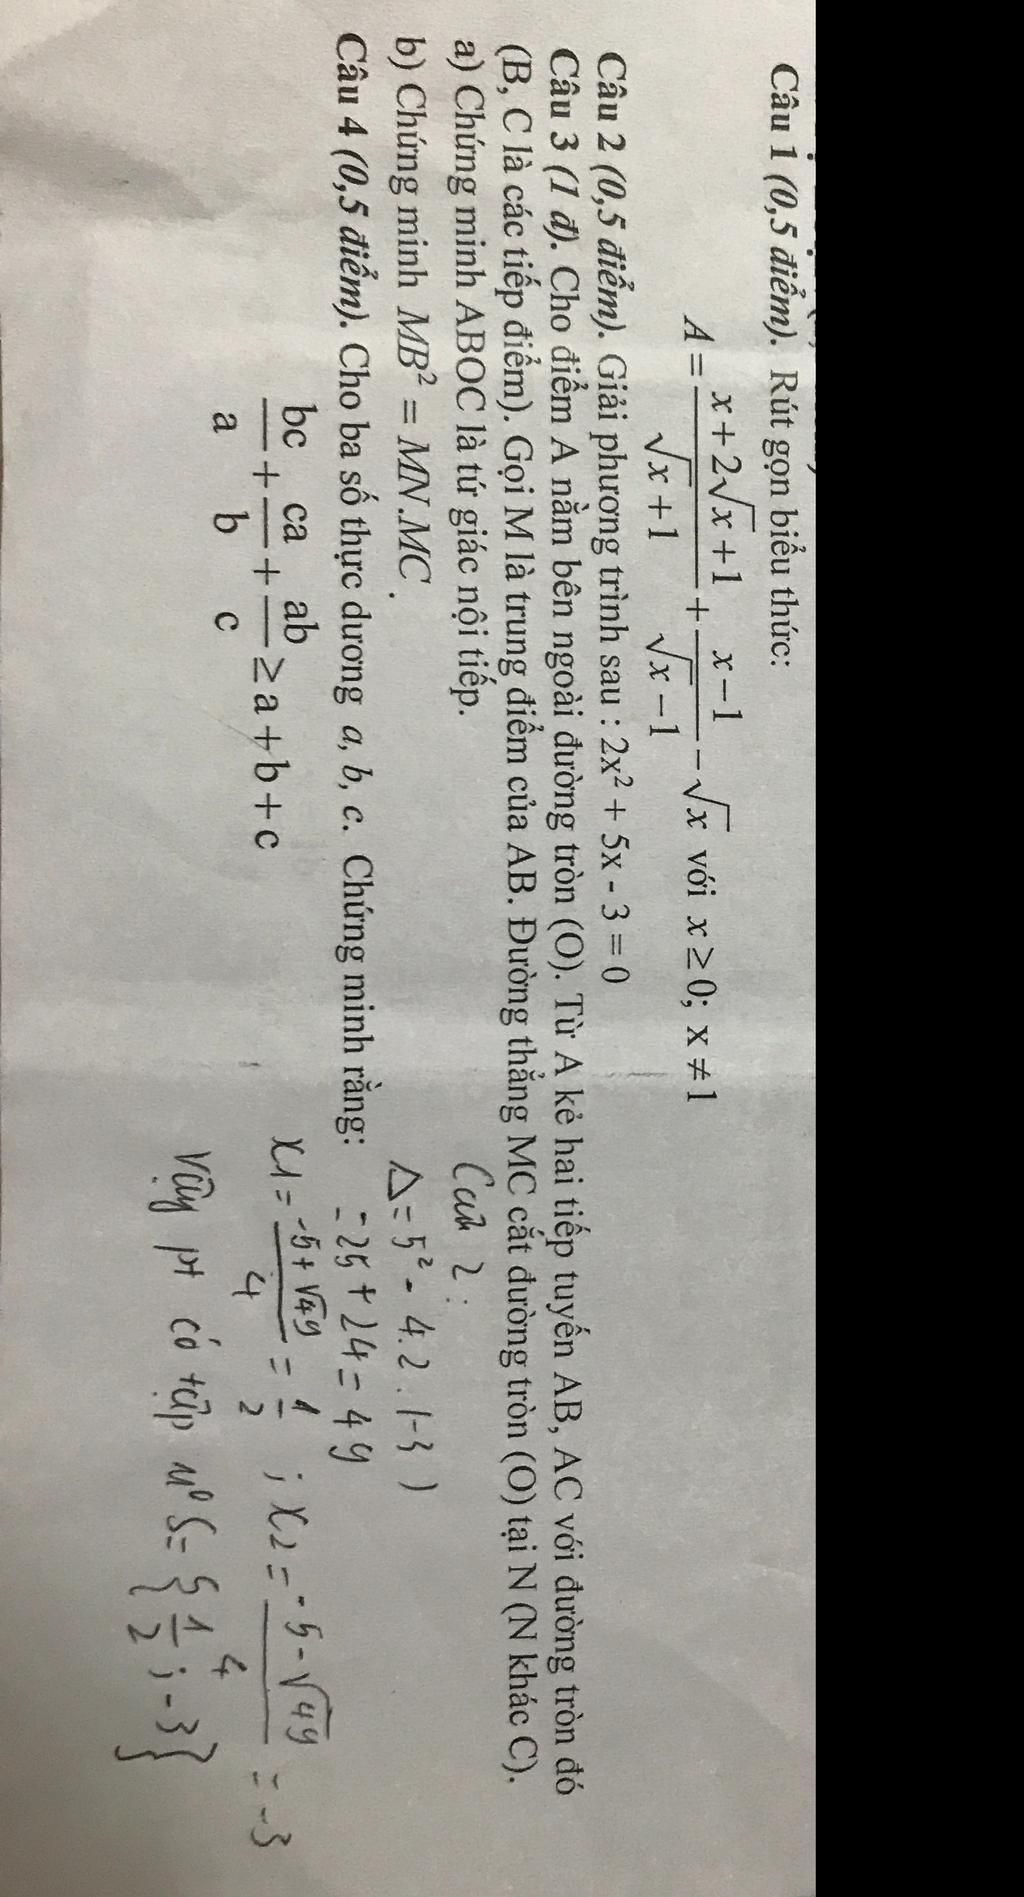 Câu 1 (0,5 điểm). Rút gọn biểu thức:
A = \frac{x+2\sqrt{x}+1}{\sqrt{x}+1} + \frac{x-1}{\sqrt{x}-1} - \sqrt{x} với x ≥ 0; x ≠ 1
Câu 2 (0,5 điểm). Giải phương trình sau : 2x² + 5x - 3 = 0
Câu 3 (1 đ). Cho điểm A nằm bên ngoài đường tròn (O). Từ A kẻ hai tiếp tuyến AB, AC với đường tròn đó
(B, C là các tiếp điểm). Gọi M là trung điểm của AB. Đường thẳng MC cắt đường tròn (O) tại N (N khác C).
a) Chứng minh ABOC là tứ giác nội tiếp.
b) Chứng minh MB² = MN.MC .
Câu 4 (0,5 điểm). Cho ba số thực dương a, b, c. Chứng minh rằng:
\frac{bc}{a} + \frac{ca}{b} + \frac{ab}{c} ≥ a + b + c
Câu 2 :
Δ = 5² - 4.2.(-3)
= 25 + 24 = 49
x1 = \frac{-5+\sqrt{49}}{4} = \frac{1}{2} ; x2 = \frac{-5-\sqrt{49}}{4} = -3
Vậy pt có tập n⁰ S = {\frac{1}{2} ; -3}